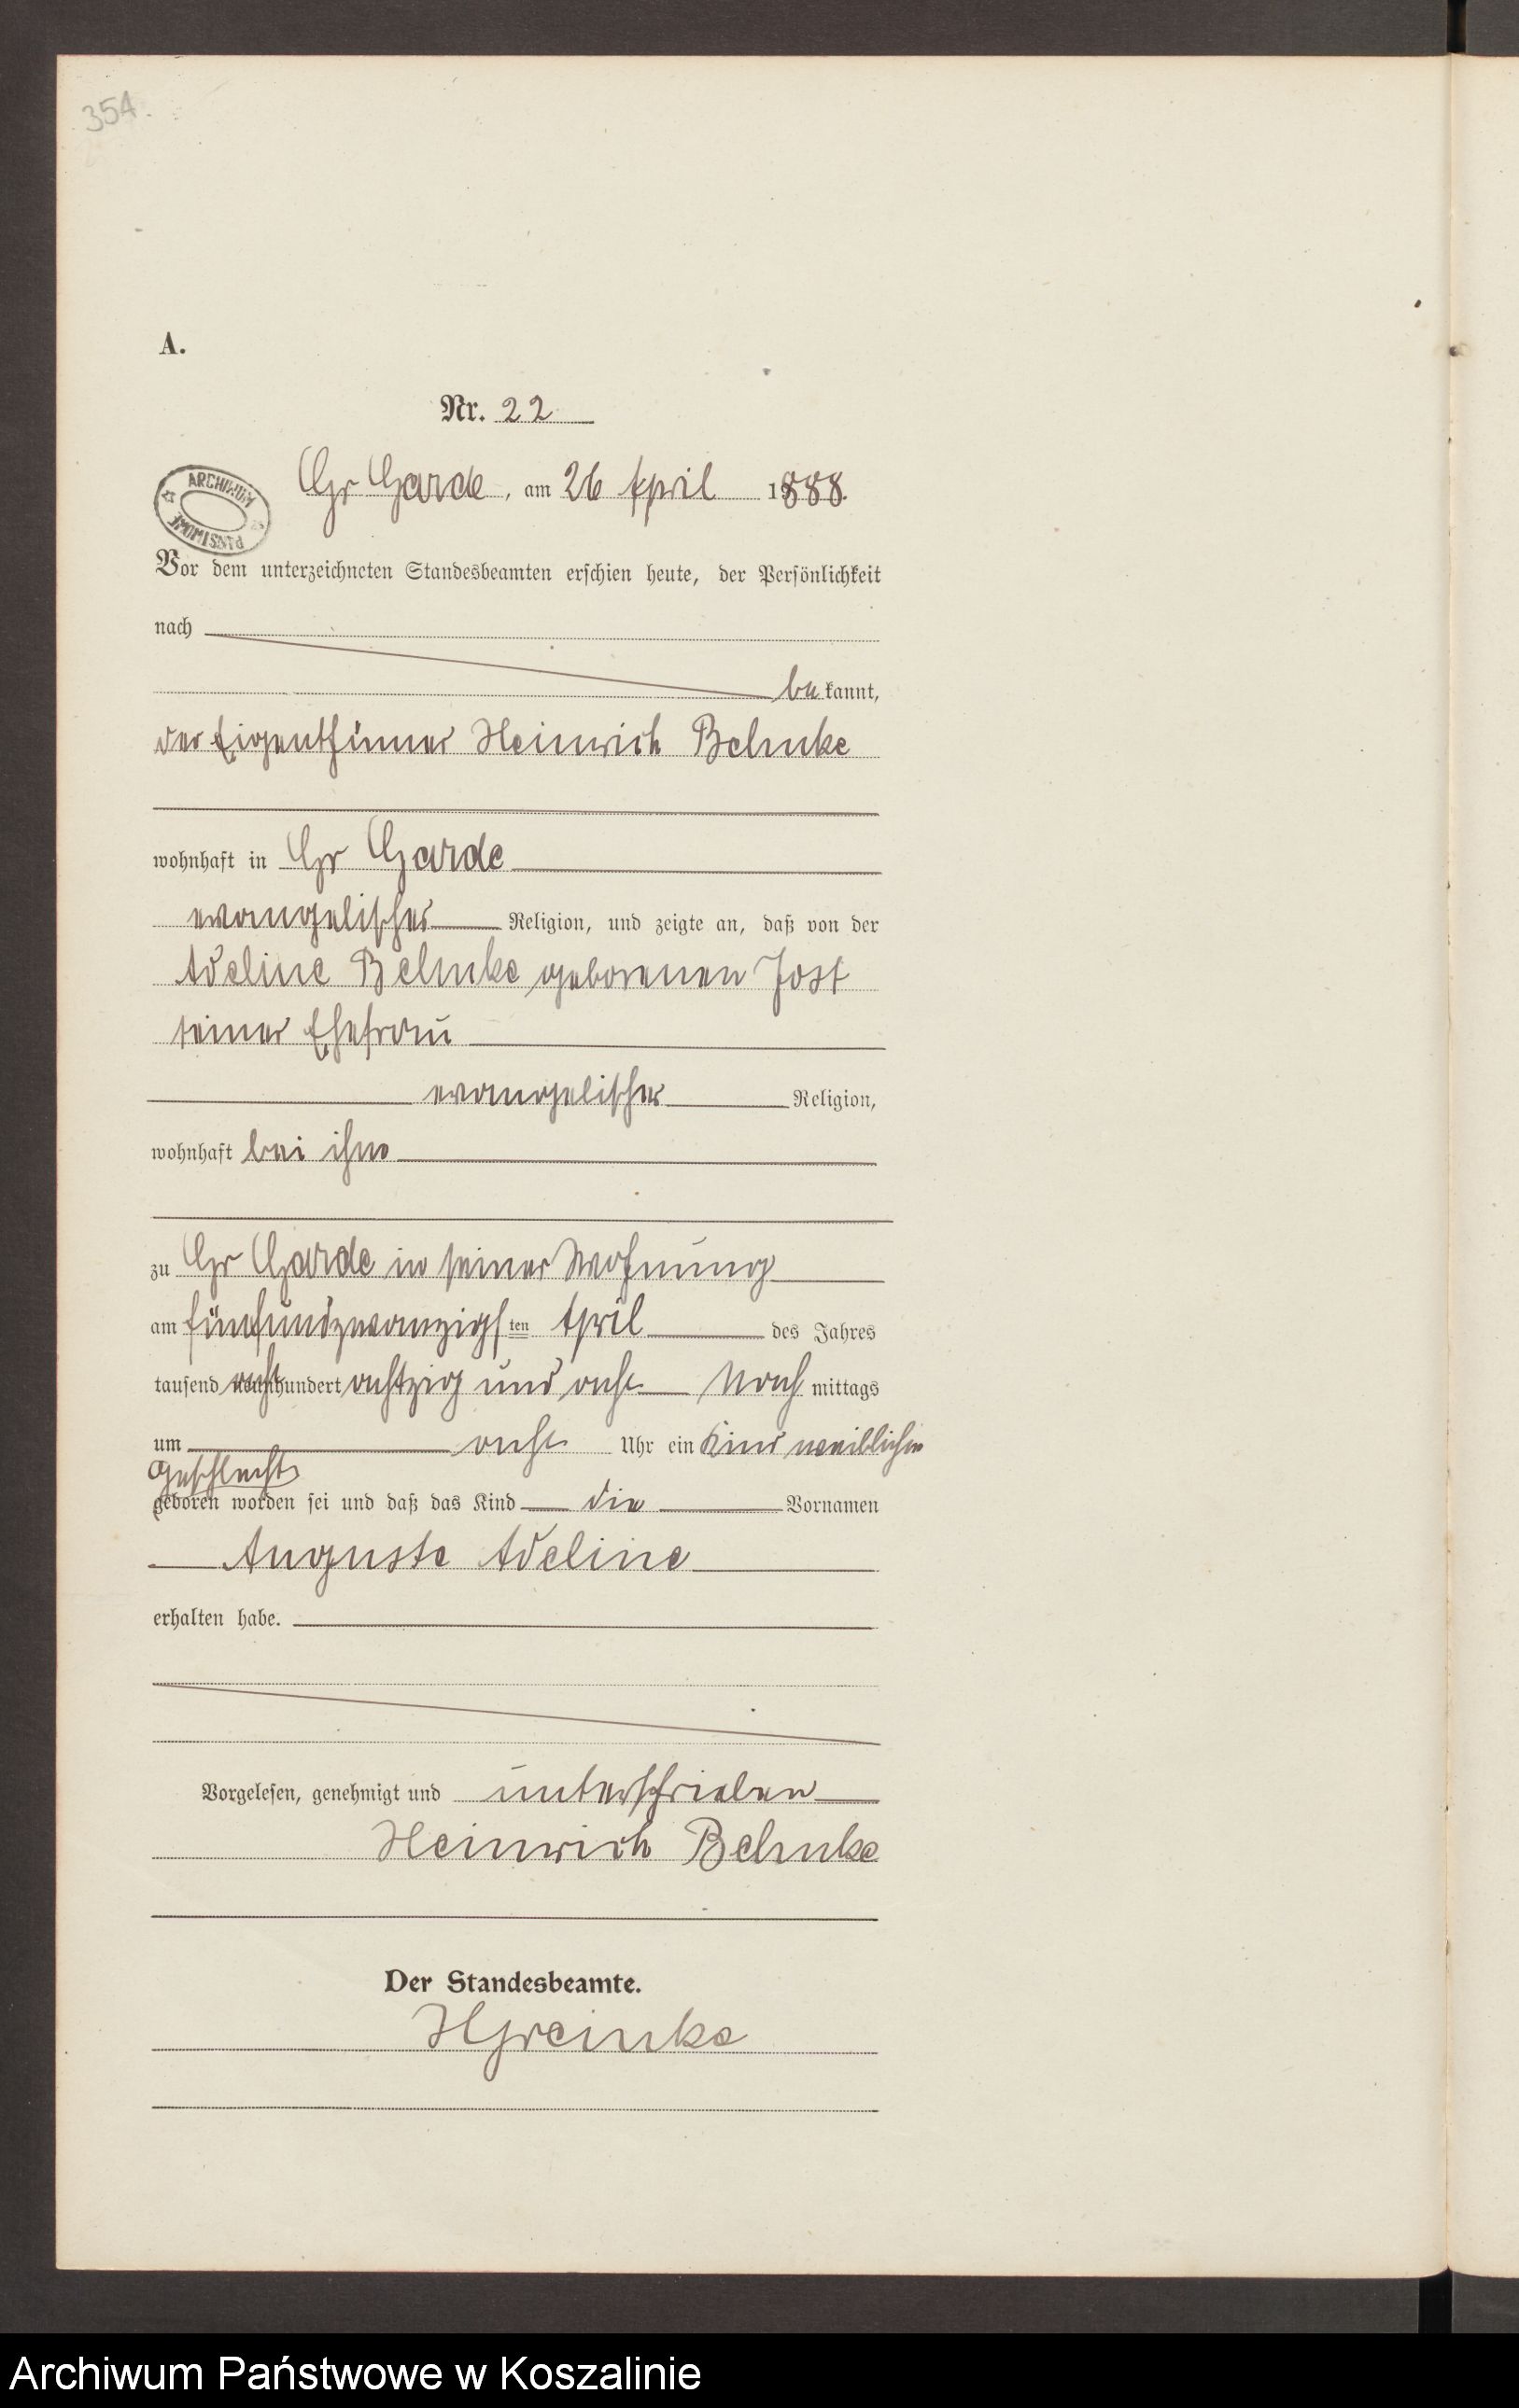 354.
A.
Nr. 22
ARCHIWUM
PAŃSTWOWE
Gr Garde, am 26 April 1888.
Vor dem unterzeichneten Standesbeamten erschien heute, der Persönlichkeit
nach
be kannt,
der Eigenthümer Heinrich Behnke
wohnhaft in Gr Garde
evangelischer Religion, und zeigte an, daß von der
Adeline Behnke geborenen Jost
seiner Ehefrau
evangelischer Religion,
wohnhaft bei ihm
zu Gr Garde in seiner Wohnung
am fünfundzwanzigsten April des Jahres
tausend acht hundert achtzig und acht Nach mittags
um acht Uhr ein Kind weiblichen
Geschlechts
geboren worden sei und daß das Kind die Vornamen
Auguste Adeline
erhalten habe.
Vorgelesen, genehmigt und unterschrieben
Heinrich Behnke
Der Standesbeamte.
HGreinke
Archiwum Państwowe w Koszalinie